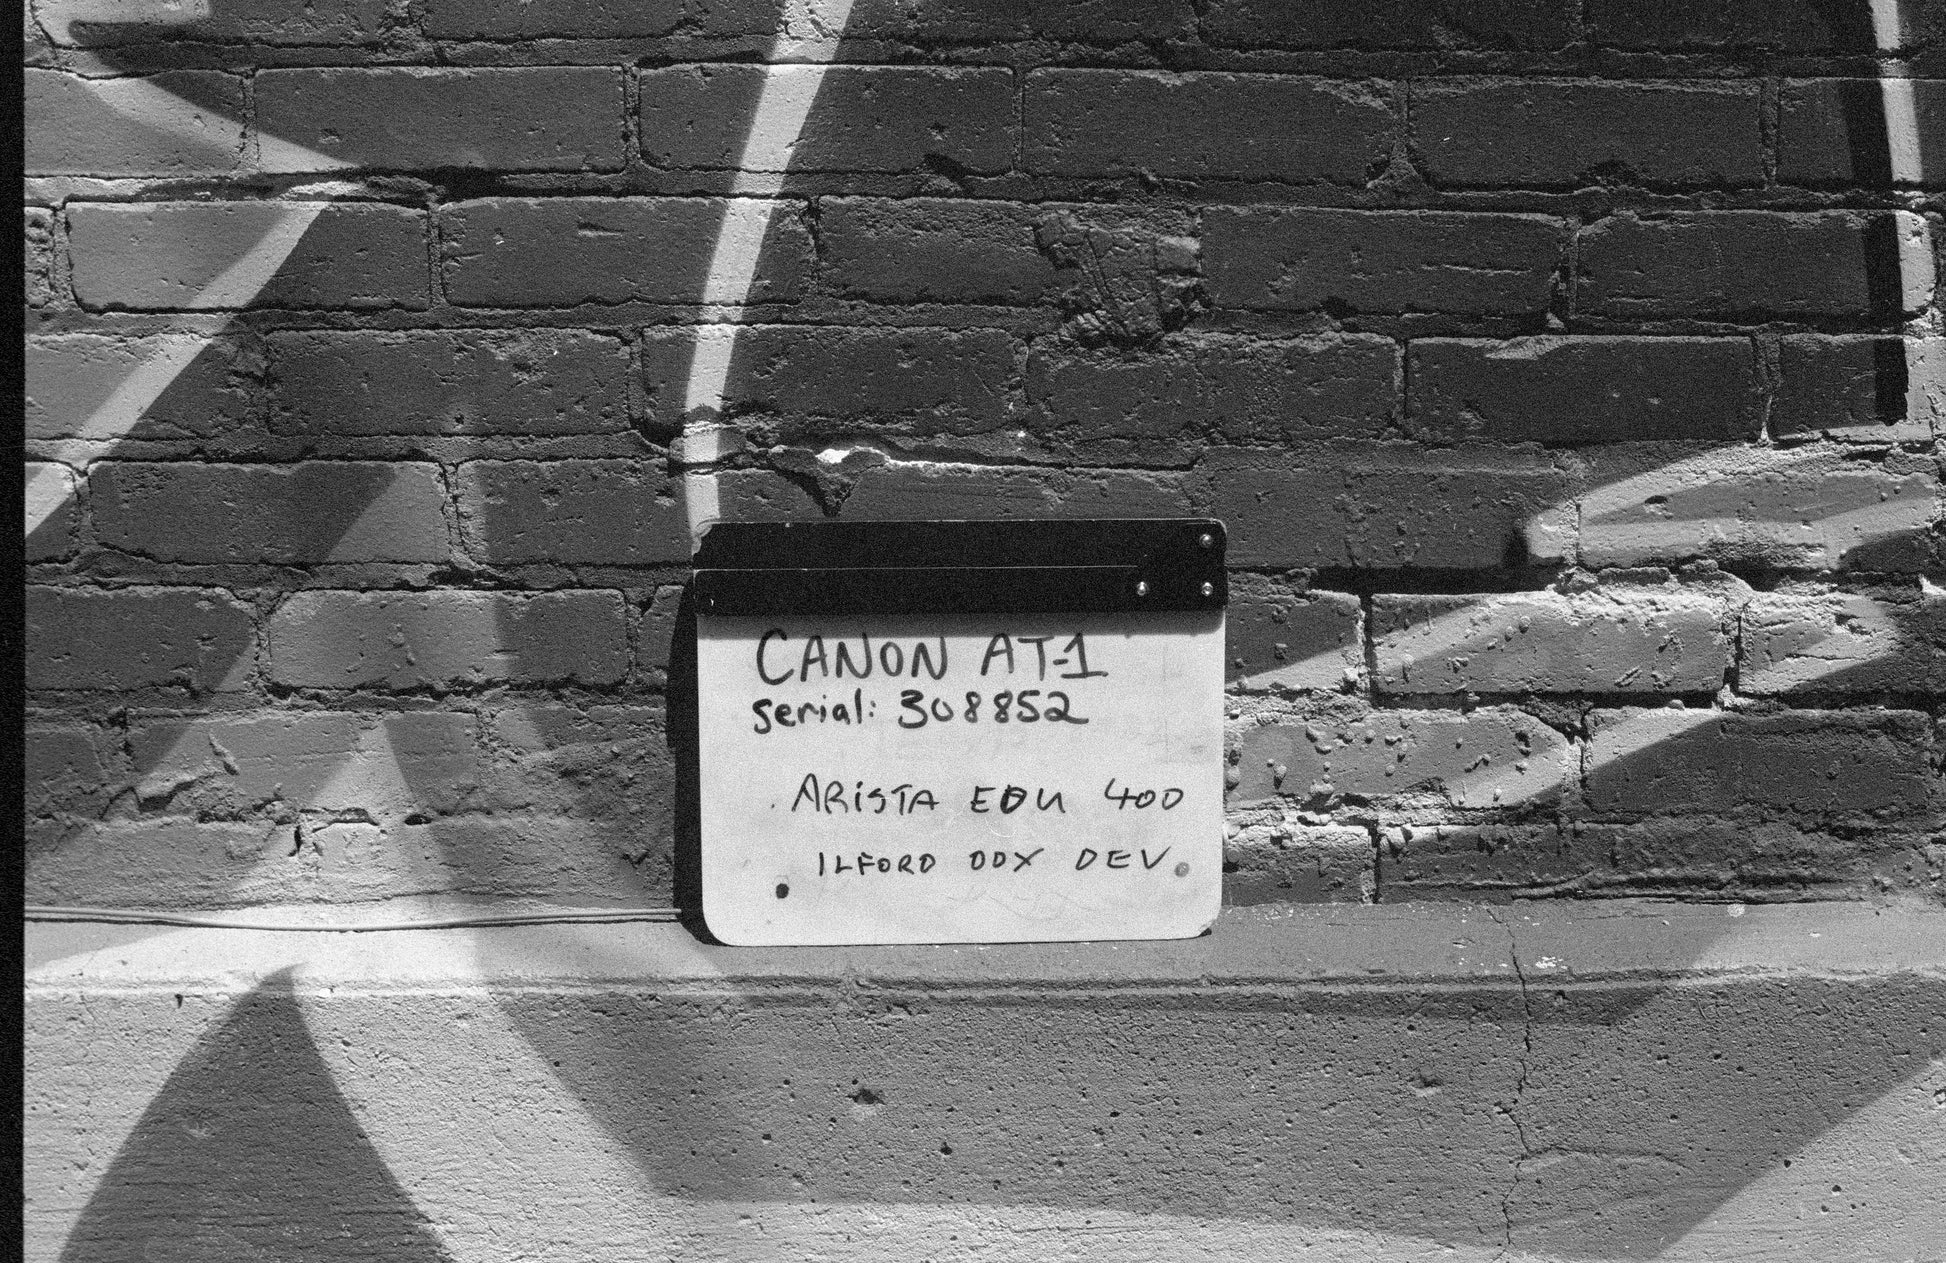 CANON AT-1
serial: 308852
ARiSTA EDU 400
ILFORD DDX DEV